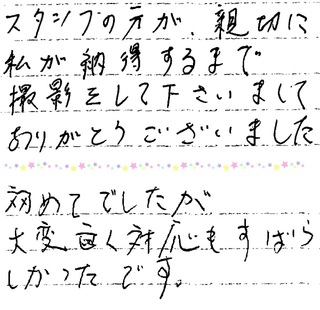 スタンプの方が、親切に
私が納得するまで
撮影をして下さいまして
ありがとうございました
初めてでしたが
大変良く対応もすばら
しかったです。